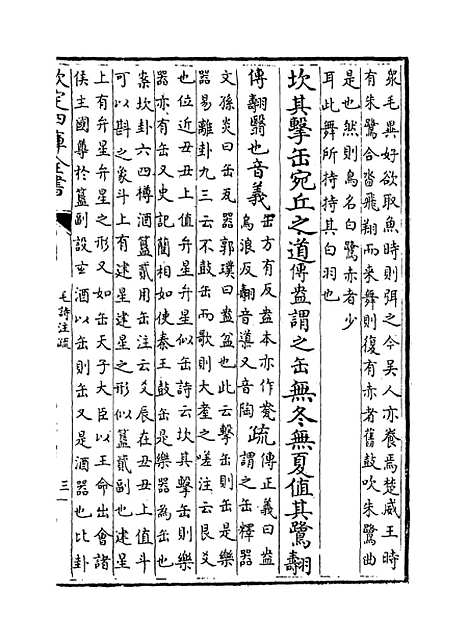 眾毛異好欲取魚時則弭之今吳人亦養焉楚威王時
有朱鷺合沓飛翔而來舞則復有赤者舊鼓吹朱鷺曲
是也然則鳥名白鷺赤者少
耳此舞所持持其白羽也
坎其擊缶宛丘之道傳盎謂之缶無冬無夏值其鷺翿
傳翿翳也音義
缶方有反盎本亦作㼜
烏浪反翿音導又音陶
疏
傳正義曰盎
謂之缶釋器
文孫炎曰缶瓦器郭璞曰盎盆也此云擊缶則缶是樂
器易離卦九三云不鼓缶而歌則大耋之嗟注云艮爻
也位近丑丑上值弁星弁星似缶詩云坎其擊缶則樂
器亦有缶又史記藺相如使秦王鼓缶是樂器為缶也
案坎卦六四樽酒簋貳用缶注云爻辰在丑丑上值斗
可以斟之象斗上有建星建星之形似簋貳副也建星
上有弁星弁星之形又如缶天子大臣以王命出會諸
侯主國尊於簋副設玄酒以缶則缶又是酒器也比卦
欽定四庫全書
毛詩注疏
三一